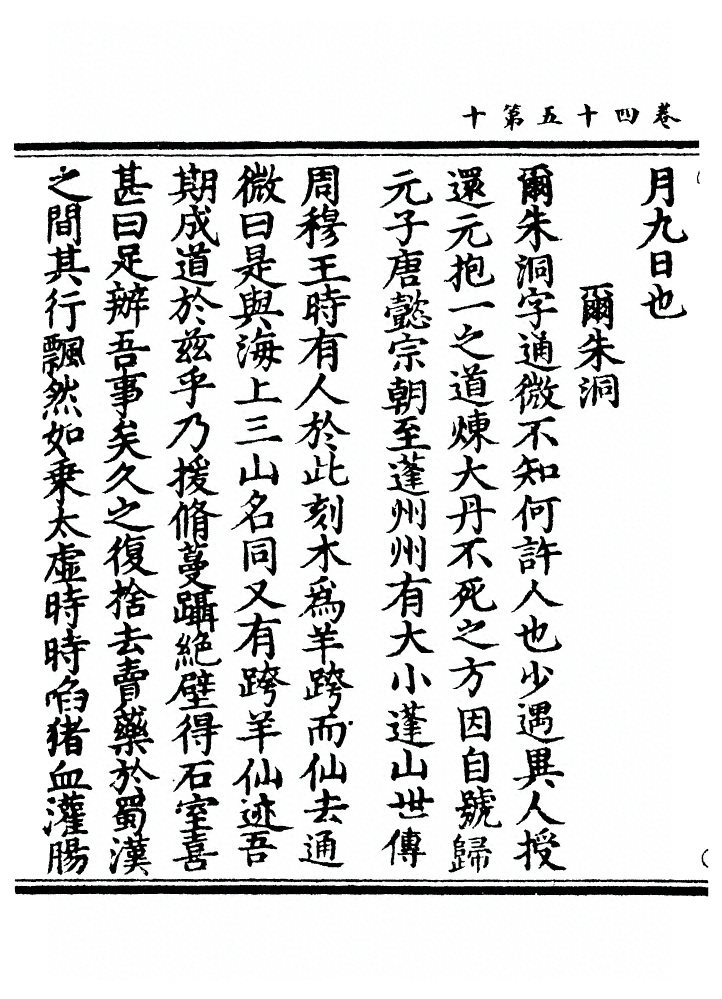 卷四十五第十
月九日也
爾朱洞
爾朱洞字通微不知何許人也少遇異人授
還元抱一之道煉大丹不死之方因自號歸
元子唐懿宗朝至蓬州州有大小蓬山世傳
周穆王時有人於此刻木為羊跨而仙去通
微曰是與海上三山名同又有跨羊仙迹吾
期成道於茲乎乃援脩蔓躡絕壁得石室喜
甚曰足辦吾事矣久之復捨去賣藥於蜀漢
之間其行飄然如乘太虛時時啗猪血灌腸